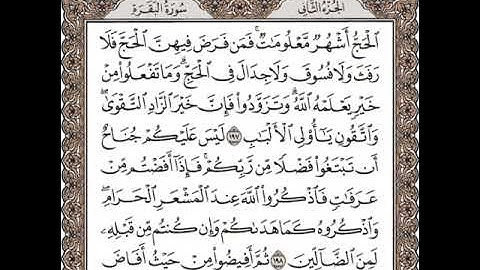 الجزء الثاني
سورة البقرة
ٱلْحَجُّ أَشْهُرٌ مَّعْلُومَٰتٌ ۚ فَمَن فَرَضَ فِيهِنَّ ٱلْحَجَّ فَلَا
رَفَثَ وَلَا فُسُوقَ وَلَا جِدَالَ فِى ٱلْحَجِّ ۗ وَمَا تَفْعَلُوا۟ مِنْ
خَيْرٍ يَعْلَمْهُ ٱللَّهُ ۗ وَتَزَوَّدُوا۟ فَإِنَّ خَيْرَ ٱلزَّادِ ٱلتَّقْوَىٰ ۚ
وَٱتَّقُونِ يَٰٓأُو۟لِى ٱلْأَلْبَٰبِ ١٩٧ لَيْسَ عَلَيْكُمْ جُنَاحٌ
أَن تَبْتَغُوا۟ فَضْلًا مِّن رَّبِّكُمْ ۚ فَإِذَآ أَفَضْتُم مِّنْ
عَرَفَٰتٍ فَٱذْكُرُوا۟ ٱللَّهَ عِندَ ٱلْمَشْعَرِ ٱلْحَرَامِ ۖ
وَٱذْكُرُوهُ كَمَا هَدَىٰكُمْ وَإِن كُنتُم مِّن قَبْلِهِۦ
لَمِنَ ٱلضَّآلِّينَ ١٩٨ ثُمَّ أَفِيضُوا۟ مِنْ حَيْثُ أَفَاضَ